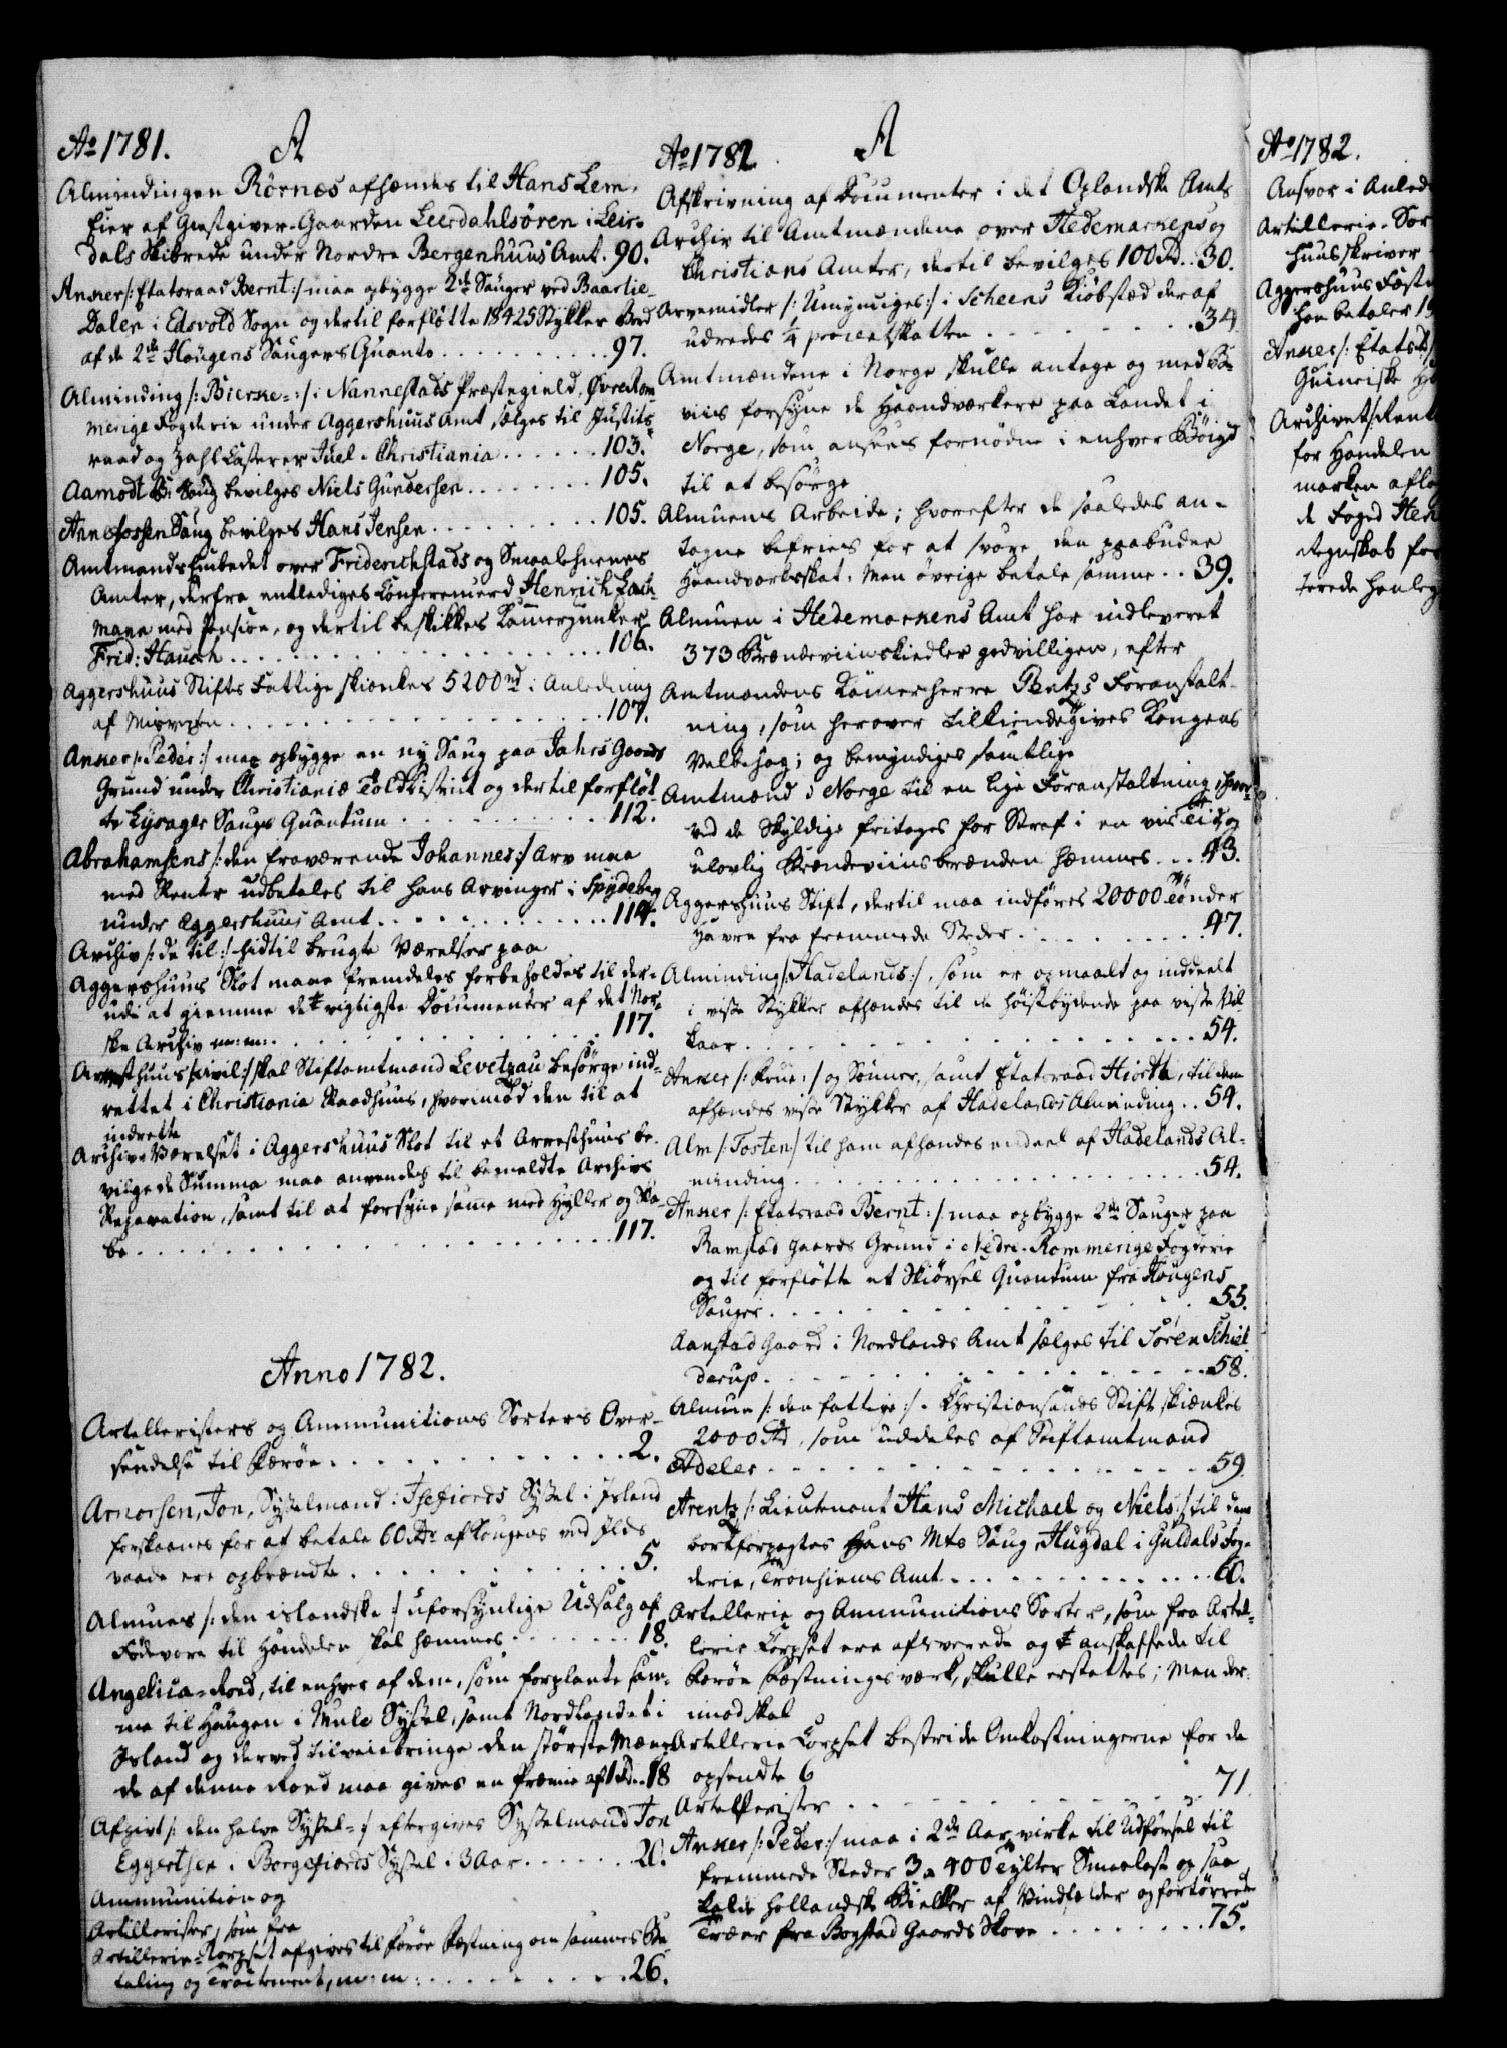 Ao 1781. A
Almindingen Rörnæs afhændes til Hans Lem,
Eier af Giestgiver-Gaarden Leerdahlsören i Leir-
dals Skibrede under Nordre Bergenhuus Amt. 90.
Anker /: Etatsraad Bernt :/ maa opbygge 2de Sauger ved Baarlie-
Dalen i Edsvold Sogn og dertil forfløtte 18425 Stykker Bord
af de 2de Haugens Saugers Quanto . . . 97.
Alminding /: Bierke- :/ i Nannestads Præstegield, Øvre Rom
merige Fogderie under Aggershuus Amt, sælges til Justits-
raad og Zahlkasserer Juel i Christiania . . . 103.
Aamodt Saug bevilges Niels Gundersen . . . 105.
Ann Fossen Saug bevilges Hans Jensen . . . 105.
Amtmands Embedet over Friderichstads og Smaalehnenes
Amter, derfra entlediges Conferenceraad Henrich
mann med Pension, og dertil beskikkes Kammerjunker
Frid: Hauch . . . 106.
Aggershuus Stifts Fattige skienkes 5200 rd i Anledning
af Misvexten . . . 107.
Anker /: Peder :/ maa opbygge en ny Saug paa Jahrs Gaards
Grund under Christianiæ Told District og dertil forfløt-
te Lysager Saugs Quantum . . . 112.
Abrahamsens /: den fraværende Johannes :/ Arv maa
med Renter udbetales til hans Arvinger i Spydeberg
under Aggershuus Amt . . . 114.
Archiv /: de til :/ hidtil brugte Værelser paa
Aggershuus Slot maae fremdeles forbeholdes til der-
udi at giemme de vigtigste Documenter af det Nor-
ske Archiv m: m: . . . 117.
Arresthuus /: civil :/ skal Stiftamtmand Levetzau besørge ind-
rettet i Christiania Raadhuus, hvorimod den til at
indrette
Archiv-Værelset i Aggershuus Slot til et Arresthuus be-
vilgede Summa maa anvendes til bemeldte Archivs
Reparation, samt til at forsyne samme med Hylder og Ska-
be . . . 117.
Anno 1782.
Artelleristers og Ammunitions Sorters Over-
sendelse til Færöe . . . 2.
Arnorsen, Jon, Sysselmand i Isefiords Syssel i Island
forskaanes for at betale 60 Rdr af Kongens ved Ilds-
vaade ere opbrændte . . . 5.
Almues /: den islandske :/ uforsynlige Udsalg af
Födevare til Handelen skal hæmmes . . . 18.
Angelica-Roed, til enhver af dem, som forplante sam-
me til Haugen i Mule Syssel, samt Nordlandet i
Island og derved tilveiebringe den største Mæng-
de af denne Roed maa gives en Præmie af 1 Rd. . 18
Afgivt /: den halve Syssel- :/ eftergives Sysselmand Jon
Eggertsen i Borgefiords Syssel i 3 Aar . . . 20.
Ammunition og
Artillerister, som fra
Artillerie-Corpset afgives til Færöe Fæstning om sammes Be-
taling og Tractement, m: m: . . . 26.
Ao 1782 A
Afskrivning af Documenter i det Oplandske Amts
Archiv til Amtmændene over Hedemarkens og
Christians Amter, dertil bevilges 100 Rd . . 30.
Arvemidler /: Umyndiges :/ i Scheens Kiöbsted deraf
udredes 1/4 procentskatten . . . 34
Amtmændene i Norge skulle antage og med Be-
viis forsyne de Haandværkere paa Landet i
Norge, som ansees fornødne i enhver Böigd
til at besörge
Almuens Arbeide; hvorefter de saaledes an-
tagne befries for at svare den paabudne
Haandværksskat. Men øvrige betale samme . . 39.
Almuen i Hedemarkens Amt har indleveret
373 Brændeviinskiedler godvilligen, efter
Amtmandens Kammerherre Pentz's Foranstalt-
ning, som herover tilkiendegives Kongens
Velbehag; og bemyndiges samtlige
Amtmænd i Norge til en lige Foranstaltning, hvor-
ved de Skyldige fritages for Straf i en vis Tid, og
ulovlig Brændeviinsbrænden hæmmes . . . 43.
Aggershuus Stift, dertil maa indföres 20000 Tönder
Havre fra fremmede Steder . . . 47.
Alminding /: Hadelands :/, som er opmaalt og inddeelt
i visse Stykker afhændes til de höistbydende paa visse Vil-
kaar . . . 54.
Anker /: Frue :/ og Sönner, samt Etatsraad Hiorth, til dem
afhændes visse Stykker af Hadelands Alminding . . 54.
Alm /: Tosten :/ til ham afhændes endeel af Hadelands Al-
minding . . . 54.
Anker /: Etatsraad Bernt :/ maa opbygge 2de Sauger paa
Ramstad Gaards Grund i Nedre-Rommerige Fogderie
og til forfløtte et Skiörsel Quantum fra Haugens
Sauger . . . 55.
Aanstad Gaard i Nordlands Amt sælges til Sören Schiel-
derup . . . 58.
Almue /: den fattige :/ i Christiansands Stift skienkes
2000 Rd, som uddeles af Stiftamtmand
Adeler . . . 59
Arentz /: Lieutenant Hans Michael og Niels :/ til dem
bortforpagtes Hans Mts Saug Hugdal i Guldals Fog-
derie, Tronhiems Amt . . . 60.
Artellerie og Ammunitions Sorter, som fra Artel-
lerie Corpset ere afleverede og anskaffede til
Færöe Fæstnings værk, skulle erstattes; men der-
imod skal
Artellerie Corpset bestride Omkostningerne for de
opsendte 6
Artellerister . . . 71.
Anker /: Peder :/ maa i 2de Aar virke til Udførsel til
fremmede Steder 3 a 400 Tylter Smaalast og saa
kaldede hollandske Bielker af Vindfælder og fortörrede
Træer fra Bogstad Gaards Skove . . . 75.
Ao 1782.
Ansvar i Anled
Artillerie-Sor
huusskriver
Aggershuus Fæstn
han betaler 19
Anker /: Etats
Guineiske
Archivet /: Rent
for Handelen
marken aflag
de Foged Hen
Regnskab for
terede henleg